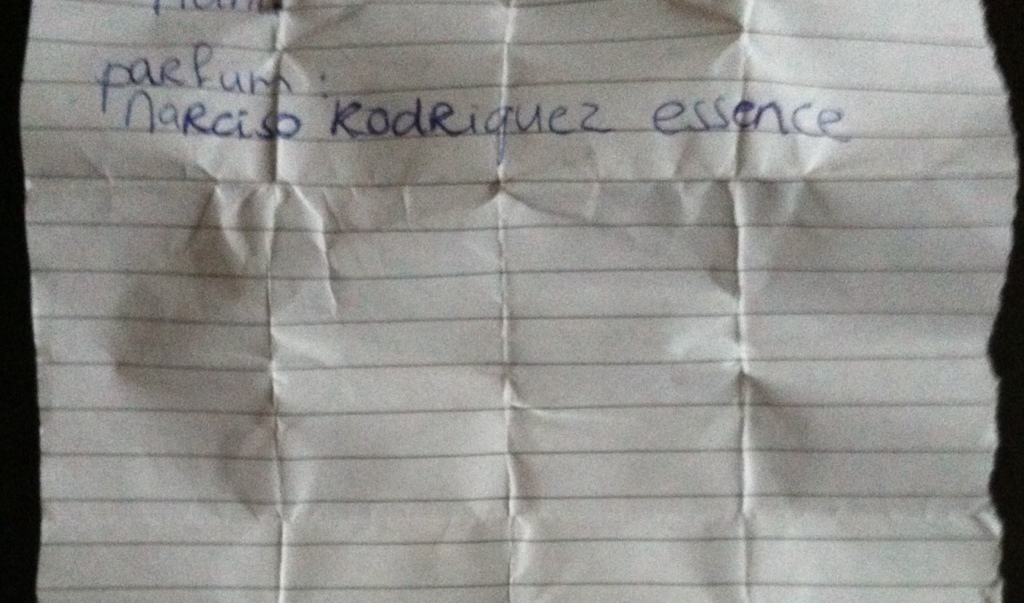 parfum:
Narciso Rodriguez essence